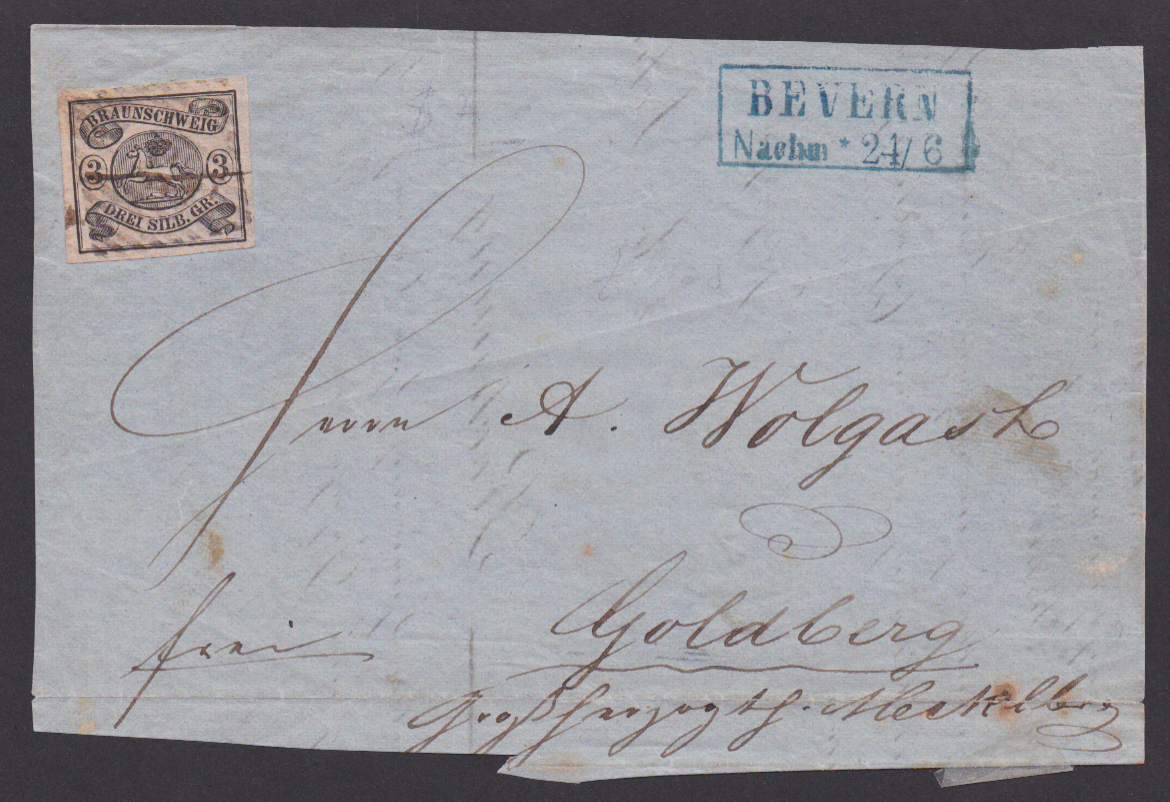 BRAUNSCHWEIG
3 3
DREI SILB. GR.
BEVERN
Nachm * 24/6
Herrn A. Wolgast
Goldberg
frei
Großherzogth. Mecklbrg